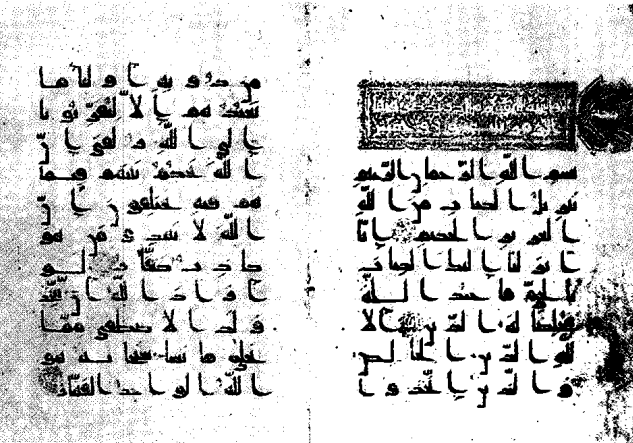 بسم الله الرحمن الرحيم
تنزيل الكتاب من الله
العزيز الحكيم انا
انزلنا اليك الكتاب
بالحق فاعبد الله
مخلصا له الدين الا
لله الدين الخالص
والذين اتخذوا
من دونه اوليا ما
نعبدهم الا ليقربونا
الى الله زلفى ان
الله يحكم بينهم فيما
هم فيه يختلفون ان
الله لا يهدي من هو
كاذب كفار لو
اراد الله ان يتخذ
ولدا لاصطفى مما
يخلق ما يشا سبحنه هو
الله الواحد القهار